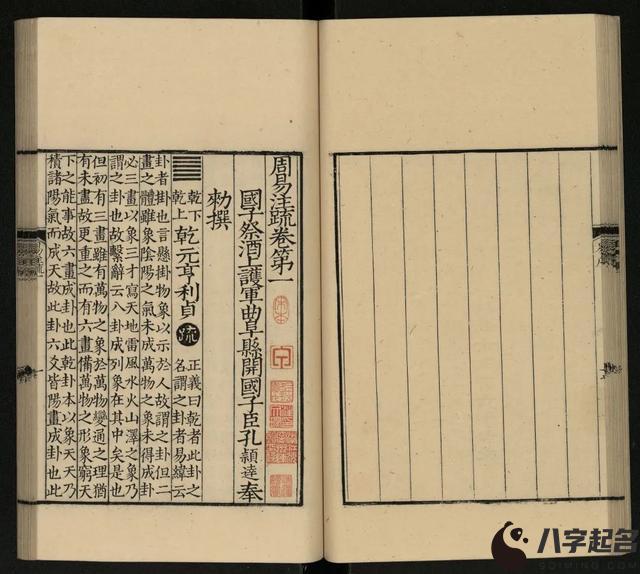 周易注疏卷第一
國子祭酒上護軍曲阜縣開國子臣孔穎達奉
勑撰
乾下
乾上
乾元亨利貞
疏
正義曰乾者此卦之
名謂之卦者易緯云
卦者掛也言懸掛物象以示於人故謂之卦但二
畫之體雖象陰陽之氣未成萬物之象未得成卦
必三畫以象三才寫天地雷風水火山澤之象乃
謂之卦也故繫辭云八卦成列象在其中矣是也
但初有三畫雖有萬物之象於萬物變通之理猶
有未盡故更重之而有六畫備萬物之形象窮天
下之能事故六畫成卦也此乾卦本以象天天乃
積諸陽氣而成天故此卦六爻皆陽畫成卦也此
宋本
八字起名